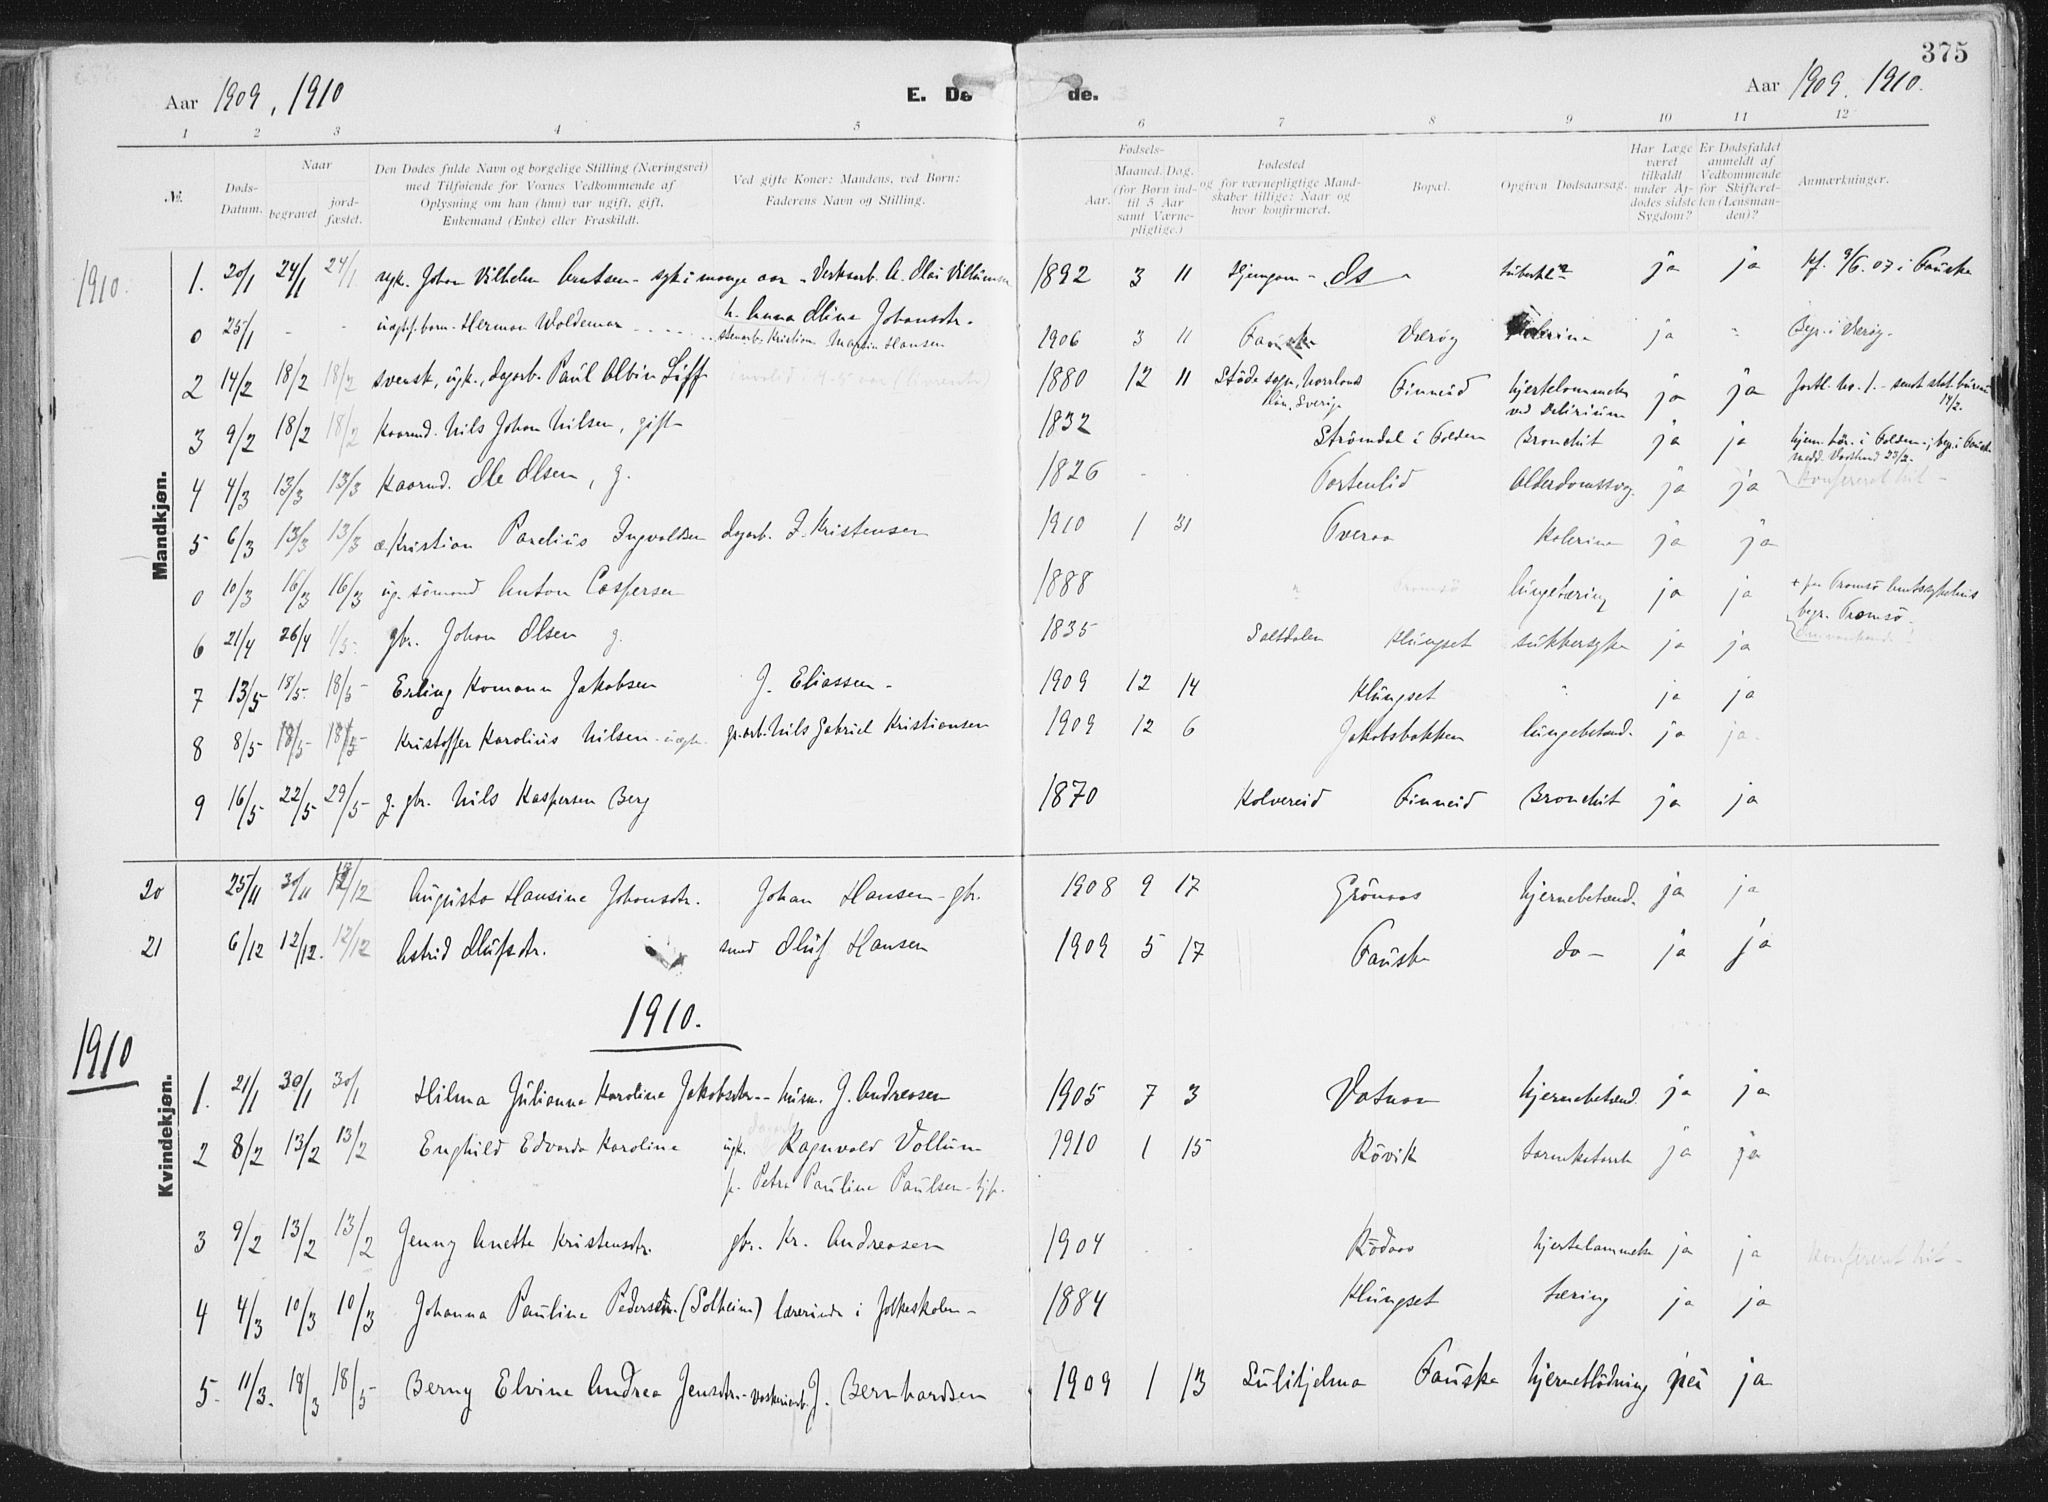 375
Aar 1909, 1910
E. Dø de.
Aar 1909. 1910.
1 2 3 4 5 6 7 8 9 10 11 12
№. Døds-Datum. Naar begravet jordfæstet.
Den Dødes fulde Navn og borgelige Stilling (Næringsvei) med Tilføiende for Voxnes Vedkommende af Oplysning om han (hun) var ugift, gift, Enkemand (Enke) eller Fraskildt.
Ved gifte Koner: Mandens, ved Børn: Faderens Navn og Stilling.
Fødsels- Aar. Maaned. Dag. (for Børn indtil 5 Aar samt Værnepligtige.)
Fødested og for værnepligtige Mandskaber tillige: Naar og hvor konfirmeret.
Bopæl.
Opgiven Dødsaarsag.
Har Læge været tilkaldt under Afdødes sidste Sygdom?
Er Dødsfaldet anmeldt af Vedkommende for Skifteretten (Lensmanden)?
Anmærkninger.
1910.
Mandkjøn.
1. 20/1 24/1 24/1 ugk. Johan Vilhelm Arntsen - syk i mange aar - Verksarb. A. Olai Villumsen 1892 3 11 Hjemgam - Os ja ja kf. 9/6. 07 i Fauske
0 25/1 - - uægtef. barn - Herman Woldemar h. Anna Oline Johansdtr. Kristian Martin Hansen 1906 3 11 Fauske Værøy Kolerine ja " Begr. i Værøy -
2 14/2 18/2 18/2 svensk, ugk., dagarb. Paul Albin Siff invalid i 4-5 aar 1880 12 11 Stöde sogn, Norrlands län, Sverige Finneid hjertelammelse ved Delirium ja ja 14/2.
3 9/2 18/2 18/2 Kaarmd. Nils Johan Nilsen, gift 1832 Strömdal i Folden Bronchit ja ja hjemhör. i Folden -, begr. i Fauske medd. 23/2 -
4 4/3 13/3 13/3 Kaarmd. Ole Olsen, g. 1826 - - Fortenlid Alderdomssvag. ja ja konfereret hit -
5 6/3 13/3 13/3 æ Kristian Parelius Ingvaldsen dagarb. I. Kristensen 1910 1 31 Tveraa Kolerine ja ja
0 10/3 16/3 16/3 ug. sömand Anton Caspersen 1888 " Tromsö lungetæring ja ja + paa Tromsö Amtssykehus begr. Tromsö -
6 21/4 26/4 1/5 gbr. Johan Olsen g. 1835 Saltdalen Klungset sukkersyke ja ja
7 13/5 18/5 18/5 Erling Komann Jakobsen J. Eliassen - 1909 12 14 Klungset " ja ja
8 8/5 18/5 18/5 Kristoffer Karolius Nilsen - uægte gr.arb. Nils Gabriel Kristiansen 1909 12 6 Jakobsbakken lungebetænd. ja ja.
9 16/5 22/5 29/5 g. gbr. Nils Kaspersen Berg 1870 Kolvereid Finneid Bronchit ja ja
20 25/11 30/11 12/12 Augusta Hansine Johansdtr. Johan Hansen - gbr. 1908 9 17 Grönaas hjernebetænd. ja ja
21 6/12 12/12. 12/12 Astrid Olufsdtr. smed Oluf Hansen 1909 5 17 Fauske do - ja ja
1910.
1910
Kvindekjøn.
1. 21/1 30/1 30/1 Hilma Julianna Karoline Jakobsdtr. - husm. J. Andreasen 1905 7 3 Vatnan hjernebetænd. ja ja
2 8/2 13/2 13/2 Enghild Edvarda Karoline ugk. Ragnvald Vollum p. Petra Pauline Paulsen - 1910 1 15 Rövik tarmkatarrh ja ja
3 9/2 13/2 13/2 Jenny Anette Kristensdtr. gbr. Kr. Andreasen 1904 - - Rödaas hjertelammelse ja ja konfereret hit -
4 4/3 10/3 10/3 Johanna Pauline Pedersdtr. (Solheim) lærerinde i folkeskolen - 1884 Klungset tæring ja ja
5. 11/3. 18/3 18/5 Berny Elvine Andrea Jensdtr. - vaskeriarb. J. Bernhardsen 1909 1 13 Sulitjelma Fauske hjerneblödning nei ja